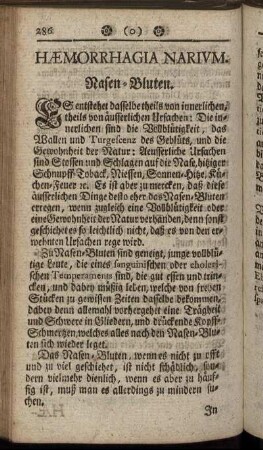 286 (o)
HÆMORRHAGIA NARIVM.
Nasen-Bluten.
ES entstehet dasselbe theils von innerlichen,
theils von äusserlichen Ursachen: Die in-
nerlichen sind die Vollblütigkeit, das
Wallen und Turgescenz des Geblüts, und die
Gewohnheit der Natur: Aeusserliche Ursachen
sind Stossen und Schlagen auf die Nase, hitziger
Schnupff-Toback, Niessen, Sonnen-Hitze, Kü-
chen-Feuer ꝛc. Es ist aber zu mercken, daß diese
äusserlichen Dinge desto eher das Nasen-Bluten
erregen, wenn zugleich eine Vollblütigkeit oder
eine Gewohnheit der Natur verhänden, denn sonst
geschiehet es so leichtlich nicht, daß es von den er-
wehnten Ursachen rege wird.
Zu Nasen-Bluten sind geneigt, junge vollblü-
tige Leute, die eines sanguinischen oder cholerj-
schen Temperaments sind, die gut essen und trin-
cken, und dabey müßig leben, welche von freyen
Stücken zu gewissen Zeiten dasselbe bekommen,
dabey denn allemahl vorhergehet eine Trägheit
und Schwere in Gliedern, und drückende Kopff-
Schmertzen, welches alles nach den Nasen-Blu-
ten sich wieder leget.
Das Nasen-Bluten, wenn es nicht zu offt
und zu viel geschiehet, ist nicht schädlich, son-
dern vielmehr dienlich, wenn es aber zu häuf-
fig ist, muß man es allerdings zu mindern su-
chen.
In